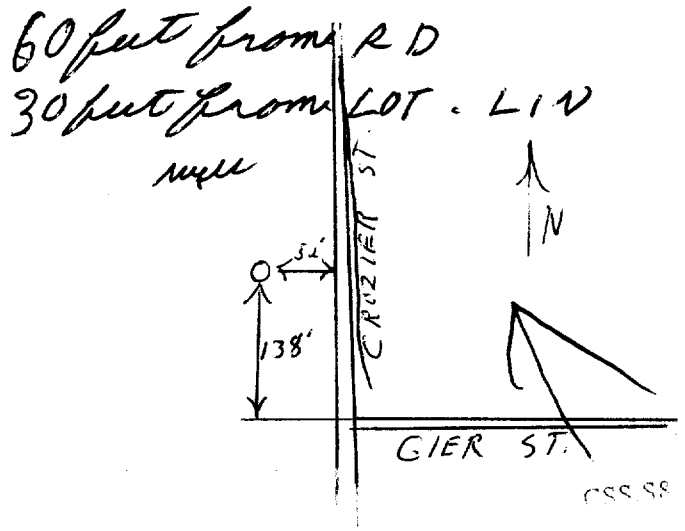 60 feet from RD
30 feet from LOT. LIN
well
CROZIER ST.
N
138'
GIER ST.